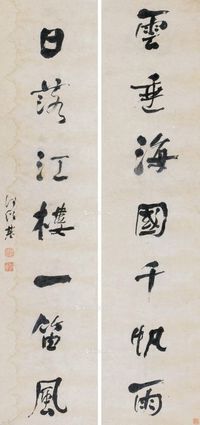 雲垂海國千帆雨
日落江樓一笛風